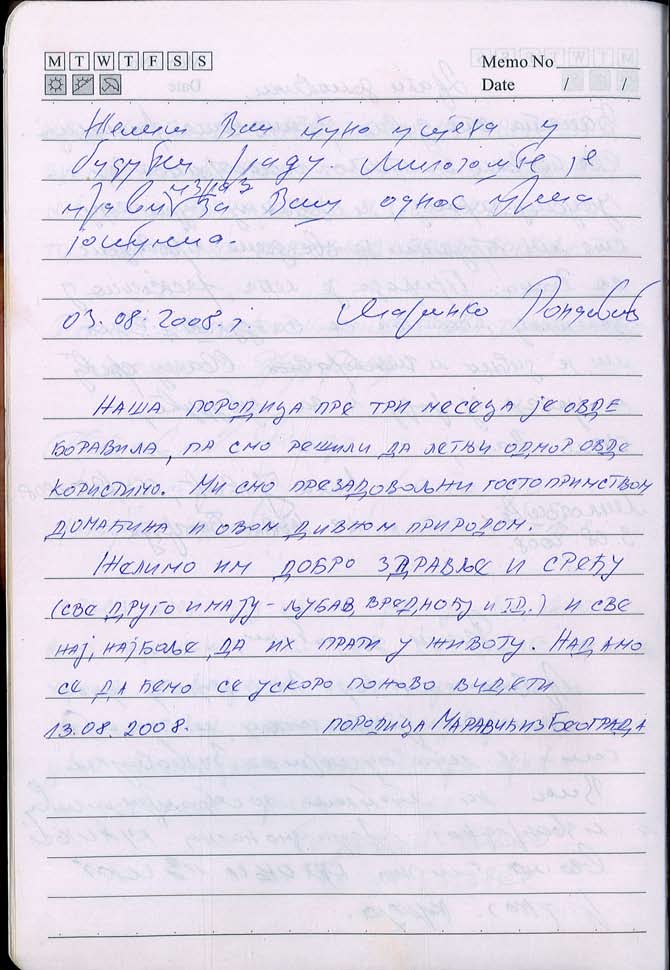 M T W T F S S
Memo No
Date / /
Желим Вам пуно успјеха у
будућем раду. Милогошће је
прави израз за Ваш однос према
људима.
03.08.2008.г. Маринко
Наша породица пре три месеца је овде
боравила, па смо решили да летњи одмор овде
користимо. Ми смо презадовољни гостопримством
домаћина и овом дивном природом.
Желимо им добро здравље и срећу
(све друго имају - љубав, вредноћу и тд.) и све
нај, најбоље да их прати у животу. Надамо
се да ћемо се ускоро поново видети
13.08.2008. породица Маравић из Београда